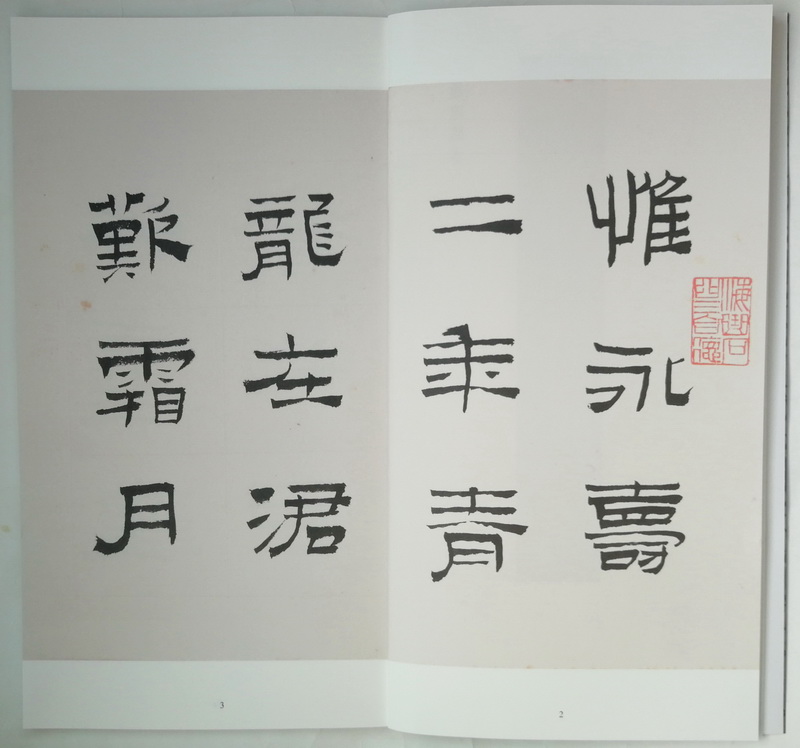 惟永壽
二年青
龍在涒
歎霜月
2
3